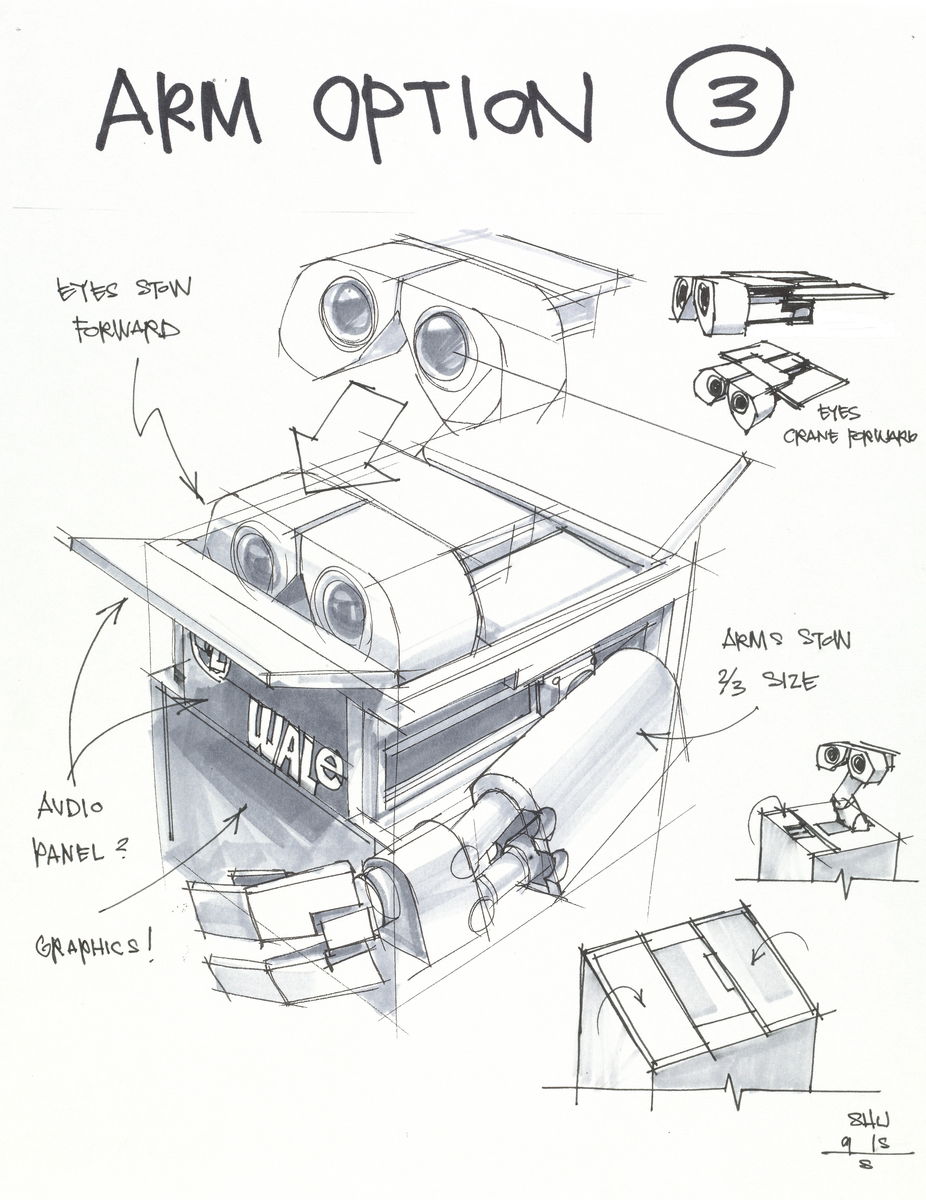 ARM OPTION 3
EYES STOW
FORWARD
EYES
CRANE FORWARD
ARMS STOW
2/3 SIZE
WALe
AUDIO
PANEL?
GRAPHICS!